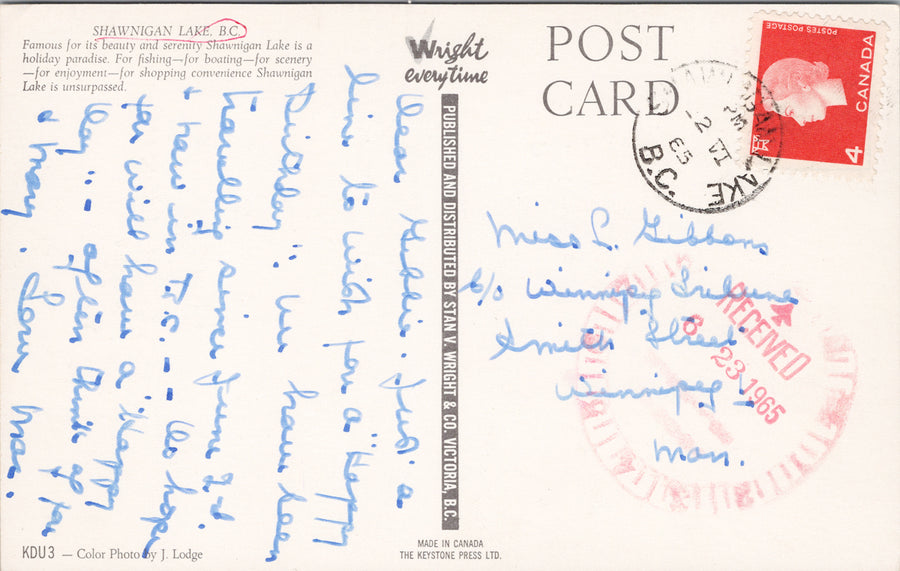 SHAWNIGAN LAKE, B.C.
Famous for its beauty and serenity Shawnigan Lake is a
holiday paradise. For fishing—for boating—for scenery
—for enjoyment—for shopping convenience Shawnigan
Lake is unsurpassed.
Dear Gibbie. Just a
line to wish you a "Happy
Birthday" we have been
travelling since June 2nd.
& now in B.C. - do hope
you will have a "Happy
Day" - often think of you
& Mary. Love Mae.
KDU3 — Color Photo by J. Lodge
Wright
everytime
PUBLISHED AND DISTRIBUTED BY STAN V. WRIGHT & CO. VICTORIA, B.C.
MADE IN CANADA
THE KEYSTONE PRESS LTD.
POST
CARD
POSTES POSTAGE
CANADA
4
LAKE
B.C.
PM
2 VI
65
Miss L. Gibbons
c/o Winnipeg Tribune
Smith Street
Winnipeg
Man.
RECEIVED
23 1965